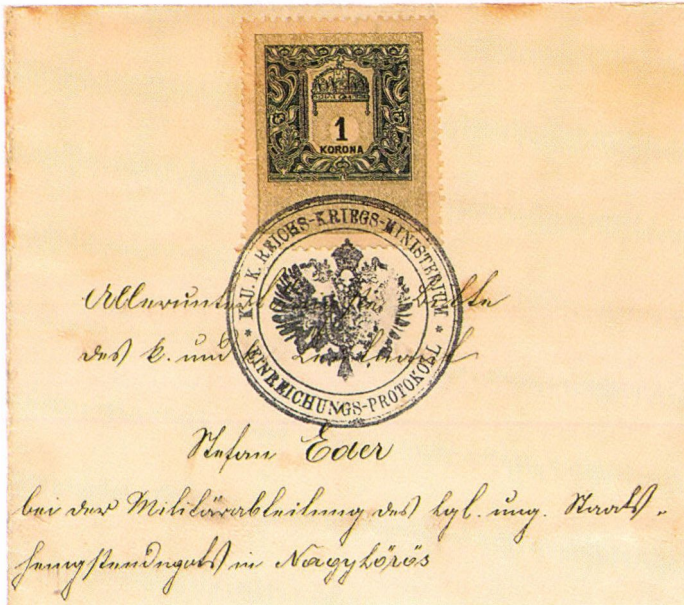 1
KORONA
K. U. K. REICHS-KRIEGS-MINISTERIUM
EINREICHUNGS-PROTOKOLL
Bitte
des k. und
Stefan Eder
bei der Militärabteilung des kgl. ung. Staats-
hengstendepots in Nagykőrös